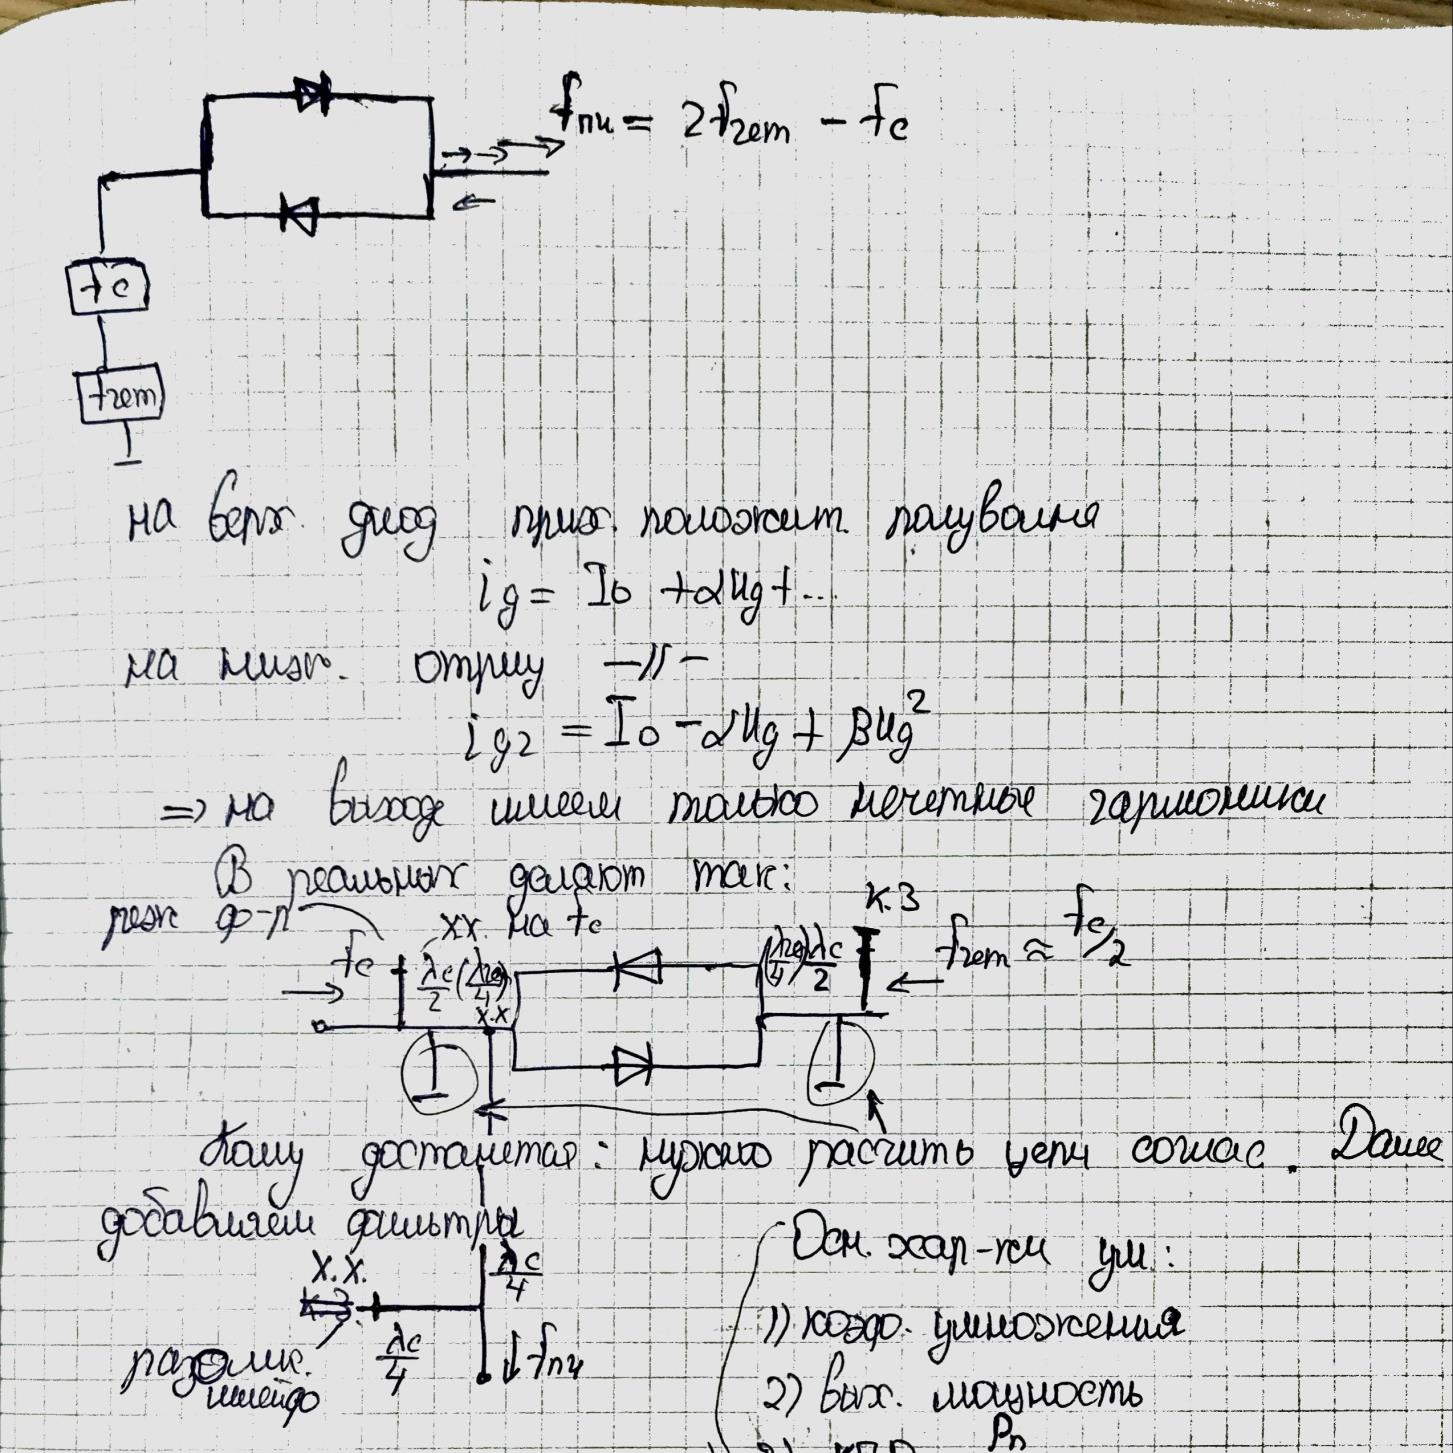 fпч = 2fгет - fc
fc
fгет
на верх. диод прих. положит. полуволна
iд = I0 + αUд + ...
на ниж. отриц —//—
iд2 = I0 - αUд + βUд²
=> на выходе имеем только нечетные гармоники
В реальных делают так:
реж ф-л
хх. на fc
к.з
fc
λc/2 (λг/4)
х.х
(λг/4) λc/2
fгет ≈ fc/2
Кому достанется: нужно расчить цепи соглас. Далее
добавляем фильтры
х.х.
λc/4
λc/4
↓ fпч
разомк.
шлейф
Осн. хар-ки ум:
1) коэф. умножения
2) вых. мощность
3) КПД
Pn